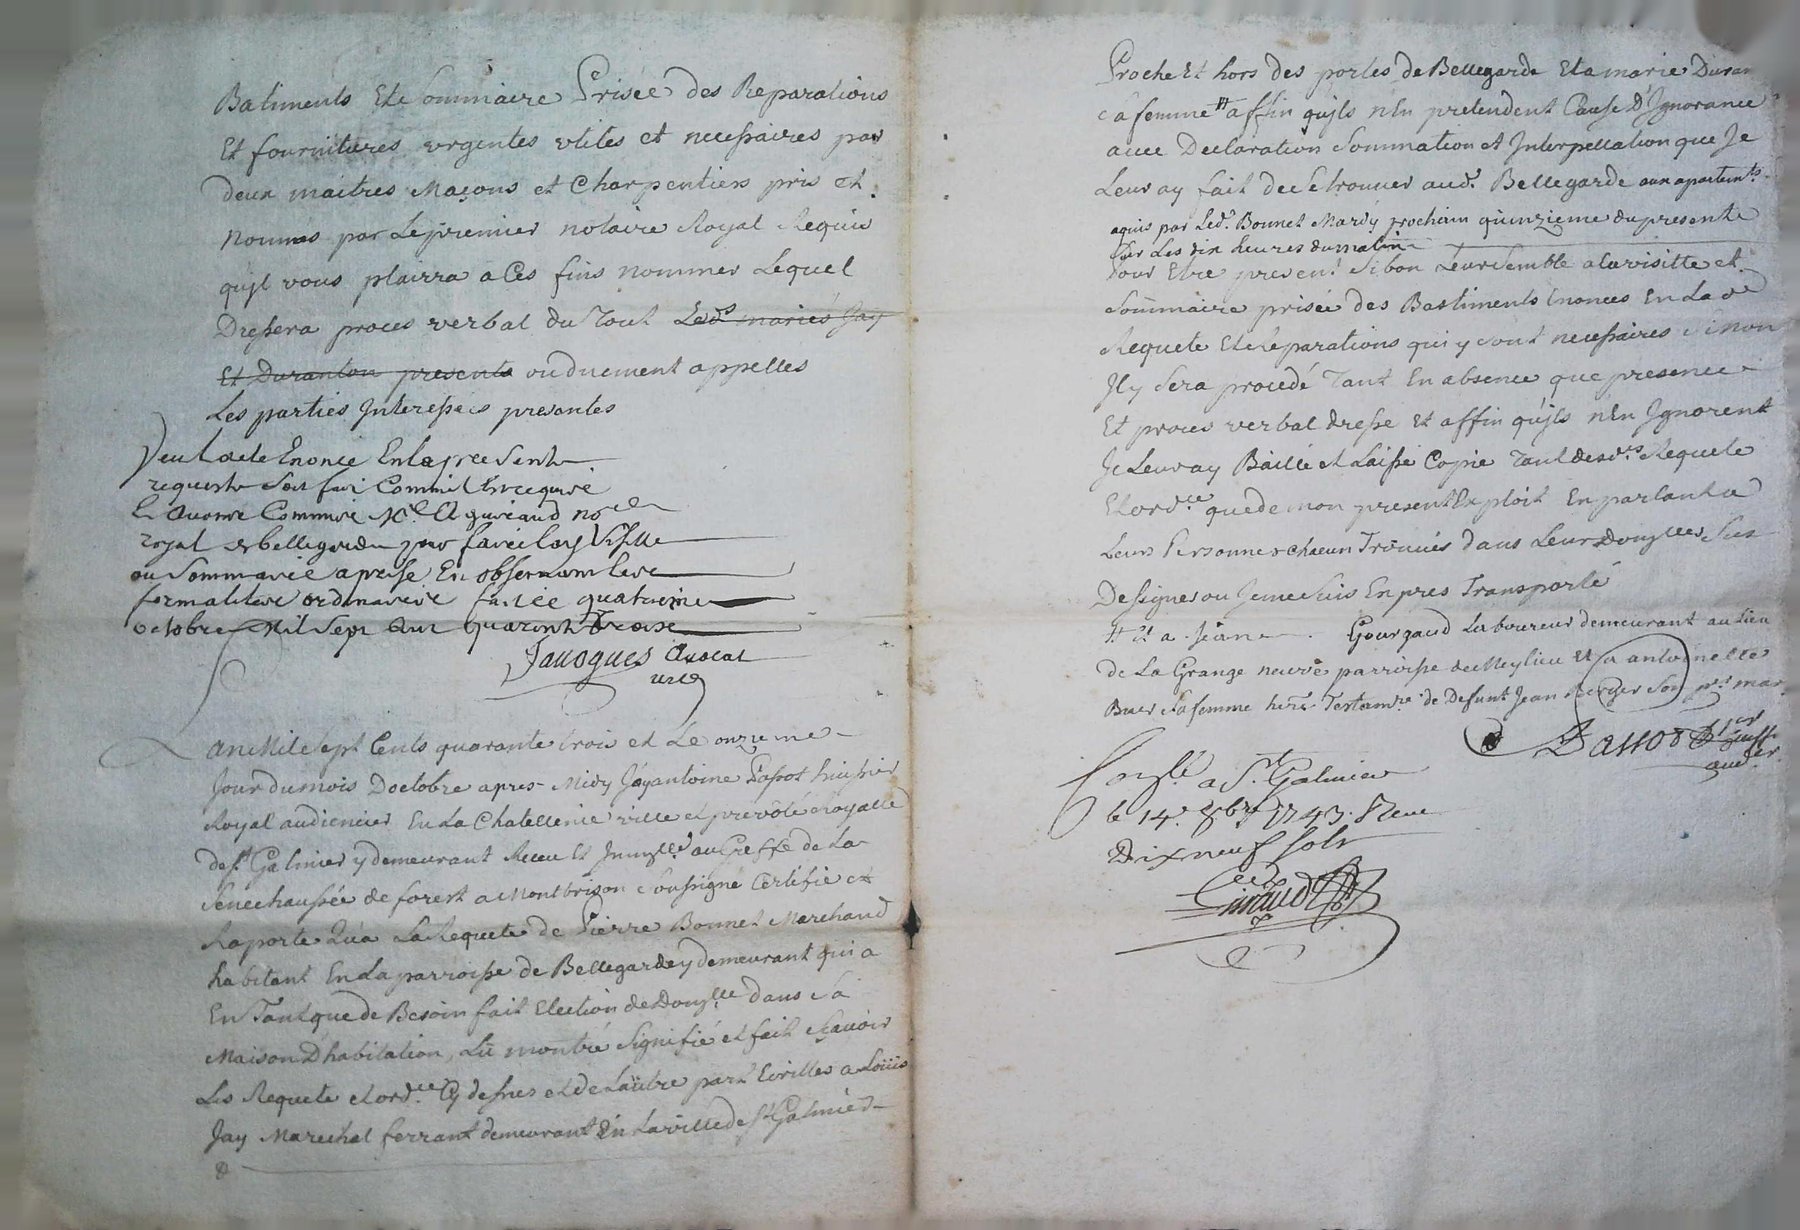 Batiments Et Sommaire Prisée des Reparations
Et fournitures urgentes utiles et necessaires par
deux maitres Maçons et Charpentiers pris et
Nommés par Le premier notaire Royal Requis
qu'jl vous plairra a Ces fins nommer Lequel
Dressera proces verbal du Tout Lesds mariés Jay
Et Duranton presents ou duement appelles
Les parties Interessées presantes
Veu Lacte Enoncé En la presente
requeste
royal de bellegarde pour faire lad visitte
ou Sommaire aprise En observant les
formalitées ordinaires fait ce quatrieme
octobre Mil Sept Cent quarante Trois
Jauogues Avocat
an Mil Sept Cents quarante trois et Le onzieme
Jour du mois Doctobre apres Midy Jay antoine Passot huissier
Royal audiencier En La Chatellenie ville et prevôté Royalle
de St Galmier y demeurant Receu Et Jmmlé au Greffe de La
Senechaussée de forest a Montbrison Soussigné Certifie et
Raporte Qu'a La Requete de Pierre Bonnet Marchand
habitant En La parroisse de Bellegarde y demeurant qui a
En Tant que de Besoin fait Election de Domjlle dans sa
Maison Dhabitation, Lü montré Signifié et fait Scavoir
Les Requete et ordce Cy dessus et de Lautre part Ecrittes a Loüis
Jay Marechal ferrant demeurant En La ville de St Galmier
Proche Et hors des portes de Bellegarde Et a marie Duran
sa femme # affin qujls nEn pretendent Cause D'Jgnorance
avec Declaration Sommation et Jnterpellation que Je
Leur ay fait de Se trouver aud. Bellegarde aux apartemts
aquis par Led. Bonnet Mardy prochain quinzieme du present
Sur Les dix heures du matin
pour Etre present Si bon Leur Semble a la visitte et
Sommaire prisée des Bastiments Enoncés En Lade
Requete Et Réparations qui y sont necessaires Sinon
Jl y Sera procedé Tant En absence que presence
Et proces verbal dressé Et affin qujls nEn Jgnorent
Je Leur ay Baillé et Laissé Copie Tant desds Requete
Et ordce que de mon present Exploit En parlant a
Leurs Personnes chacun Trouvés dans Leurs Domjlles Sus
Designes ou Je me Suis Exprès Transporté
# Et a Jean Gourgaud Laboureur demeurant au Lieu
de La Grange neuve parroisse de Meylieu Et a antoinette
Buer Sa femme herre Testamre de Defunt Jean Berger Son pr mar
Passot hier
aud.
Conslé a St Galmier
le 14e 8bre 1743. Receu
Dix neuf Sols
Giraud